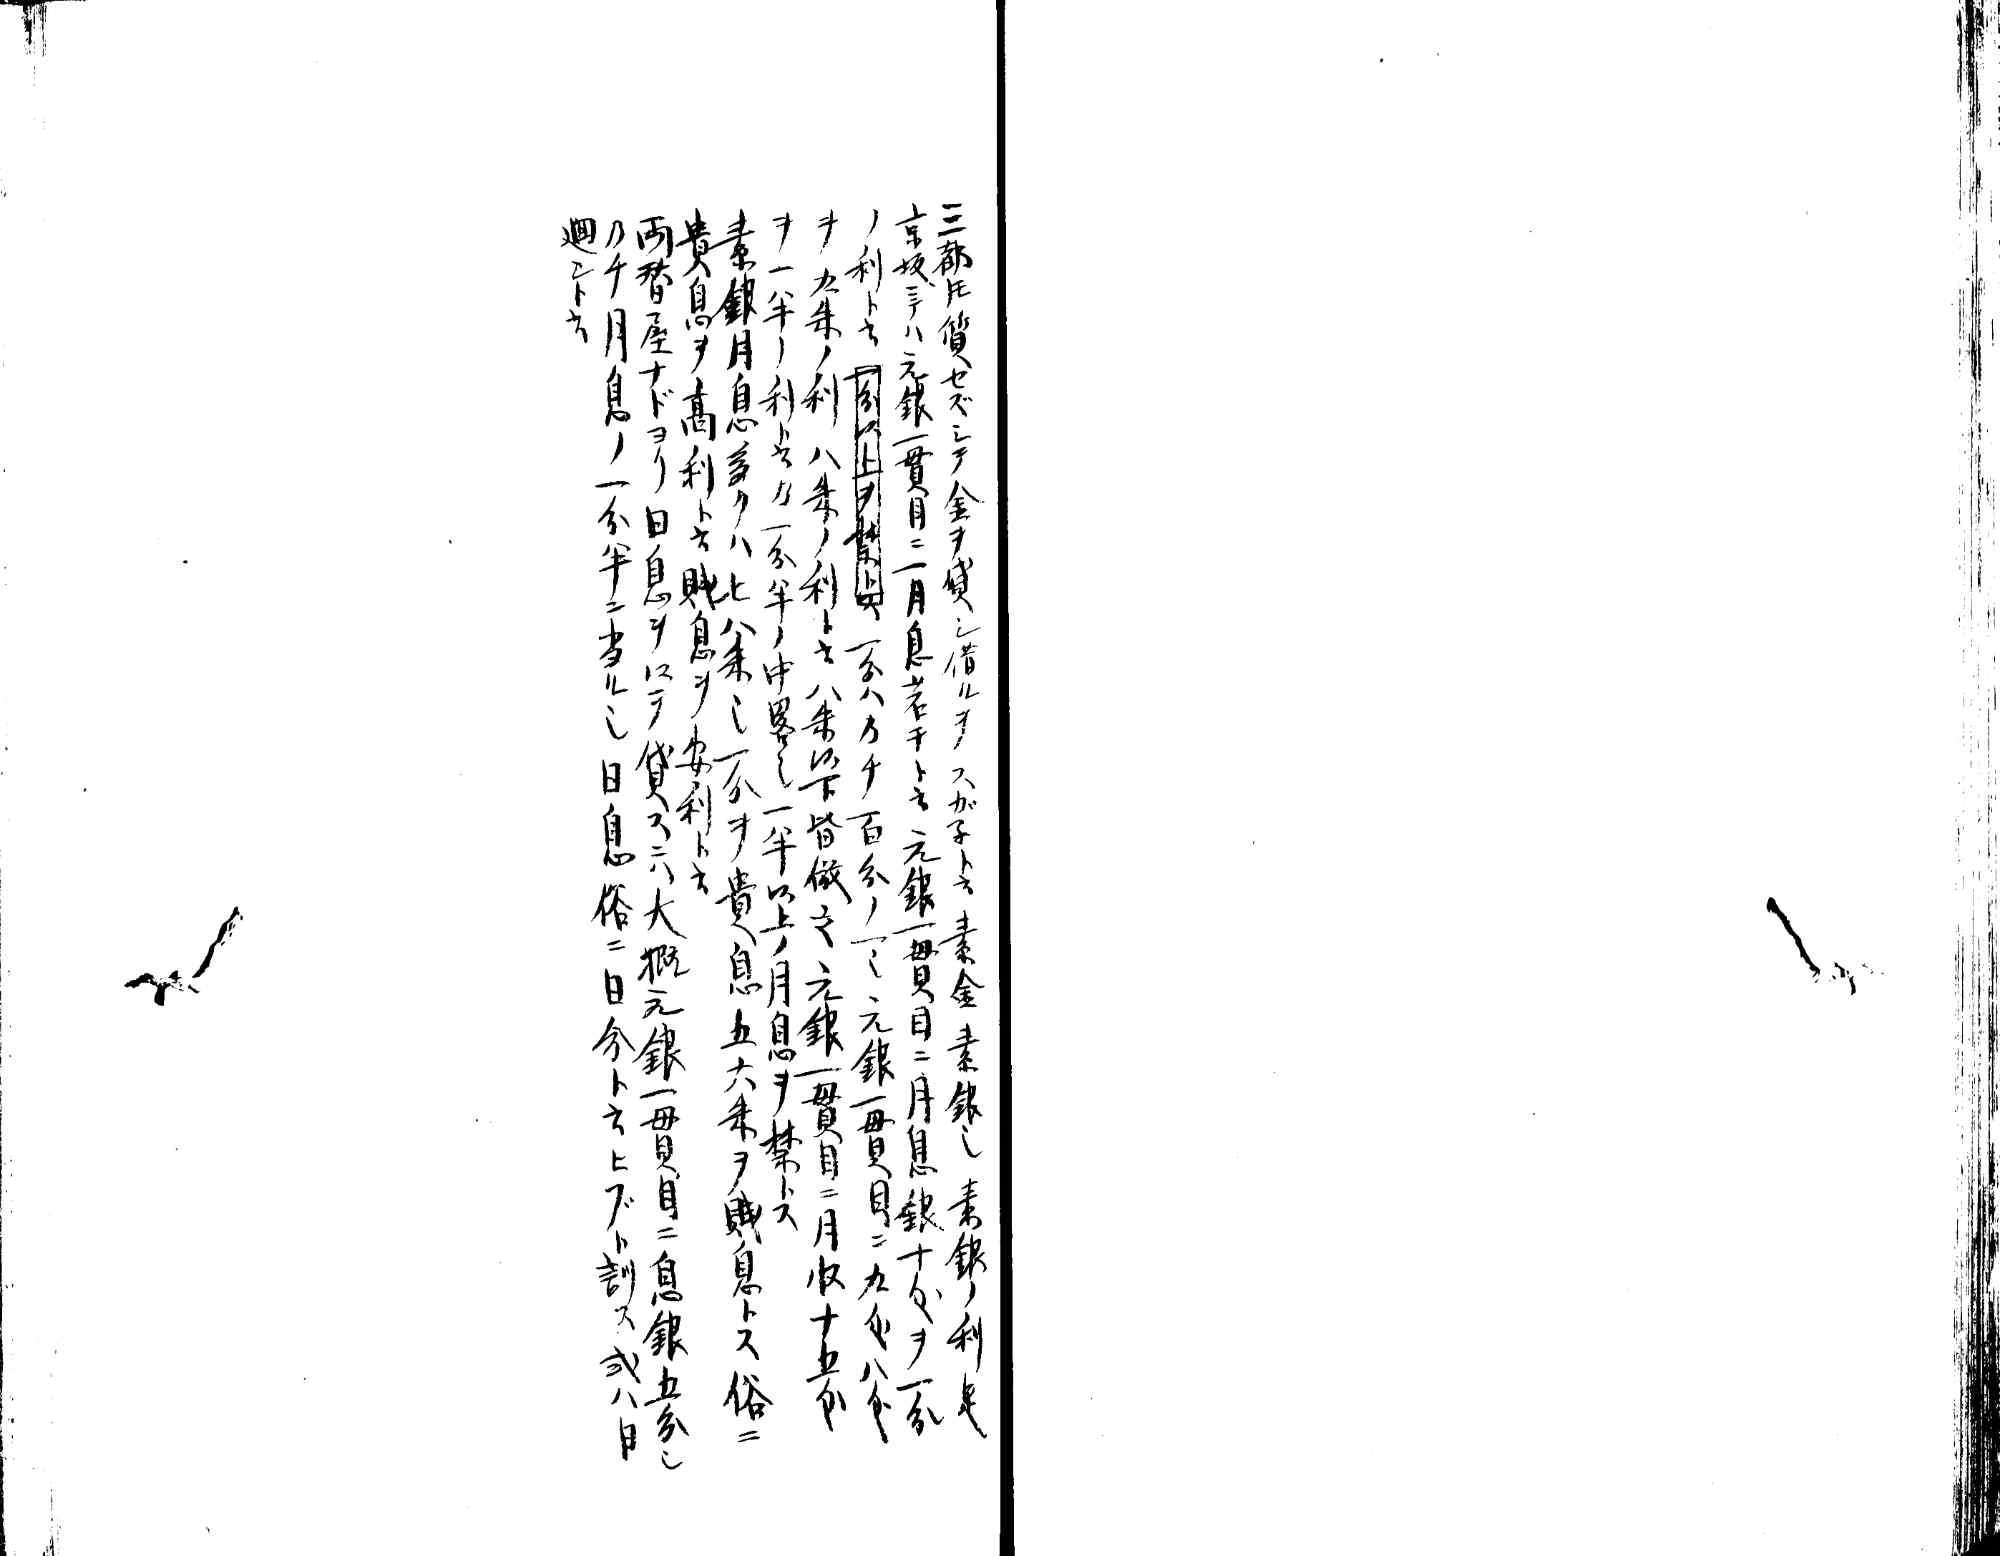 三都トモ質セズシテ金ヲ貸シ借ルヲスガ子ト云素金素銀也素銀ノ利息
京坂ニテハ元銀一貫目ニ一月息若干ト云元銀一貫目ニ月息銀十匁ヲ一分
ノ利ト云一分以上ヲ禁止ス一分ハ乃チ百分ノ一也元銀一貫目ニ九匁八匁
ヲ九朱ノ利八朱ノ利ト云八朱以下皆傚之元銀一貫目ニ月収十五匁
ヲ一半ノ利ト云乃一分半ノ中畧也一半以上ノ月息ヲ禁トス
素銀月息多クハ七八朱也一分ヲ貴息五六朱ヲ賤息トス俗ニ
貴息ヲ高利ト云賤息ヲ安利ト云
両替屋ナドヨリ日息ヲ以テ貸スニハ大概元銀一貫目ニ息銀五分也
乃チ月息ノ一分半ニ当ル也日息俗ニ日分ト云ヒブト訓ス或ハ日
廻シト云